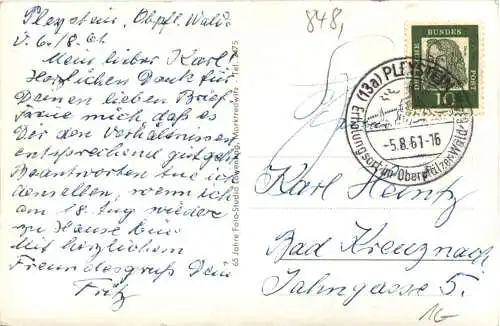 Pleystein, Obpfl. Wald.
d. 6./8. 61.
Mein lieber Karl!
Herzlichen Dank für
Deinen lieben Brief
freue mich, daß es
Dir den Verhältnissen
entsprechend gut geht
Beantworten tue ich
denselben, wenn ich
am 18. Aug wieder
zu Hause bin
Mit herzlichem
Freundesgruß Dein
Fritz
65 Jahre Foto-Studio Marktredwitz Tel. 2475
848,
DEUTSCHE BUNDESPOST
10
(13a) PLEYSTEIN
-5.8.61-16
Erholungsort im Oberpfälzer Wald
Karl Heintz
Bad Kreuznach
Jahngasse 5.
1G